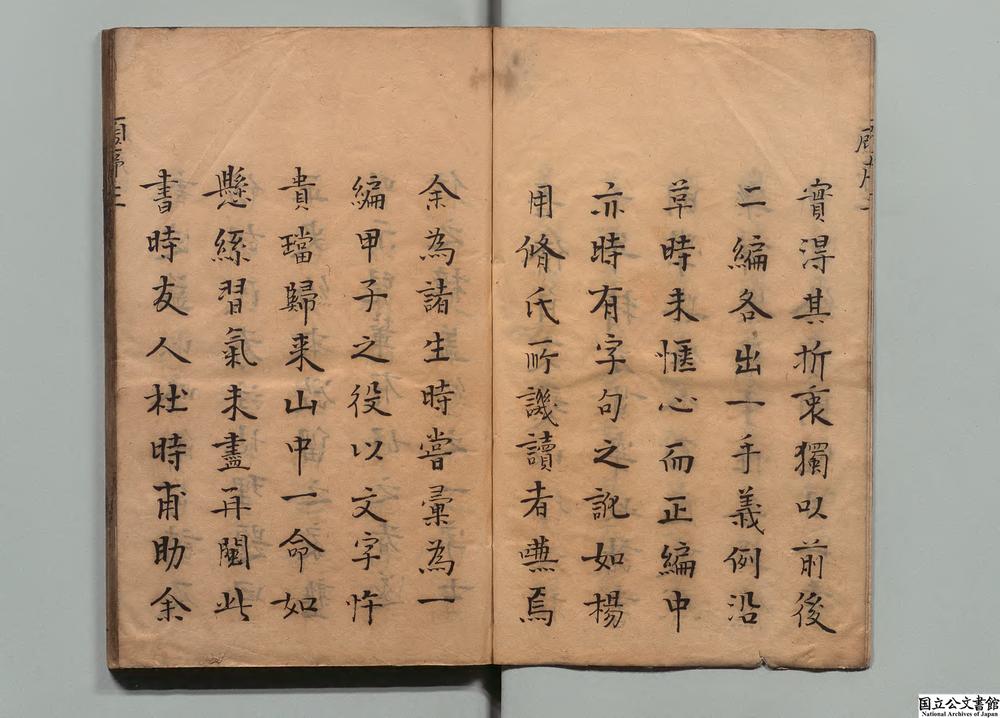 實得其折衷獨以前後
二編各出一手義例沿
草時未愜心而正編中
亦時有字句之訛如楊
用脩氏所譏讀者嗛焉
余為諸生時嘗彙為一
編甲子之役以文字忤
貴璫歸来山中一命如
懸絲習氣未盡再閱此
書時友人杜時甫助余
国立公文書館
National Archives of Japan